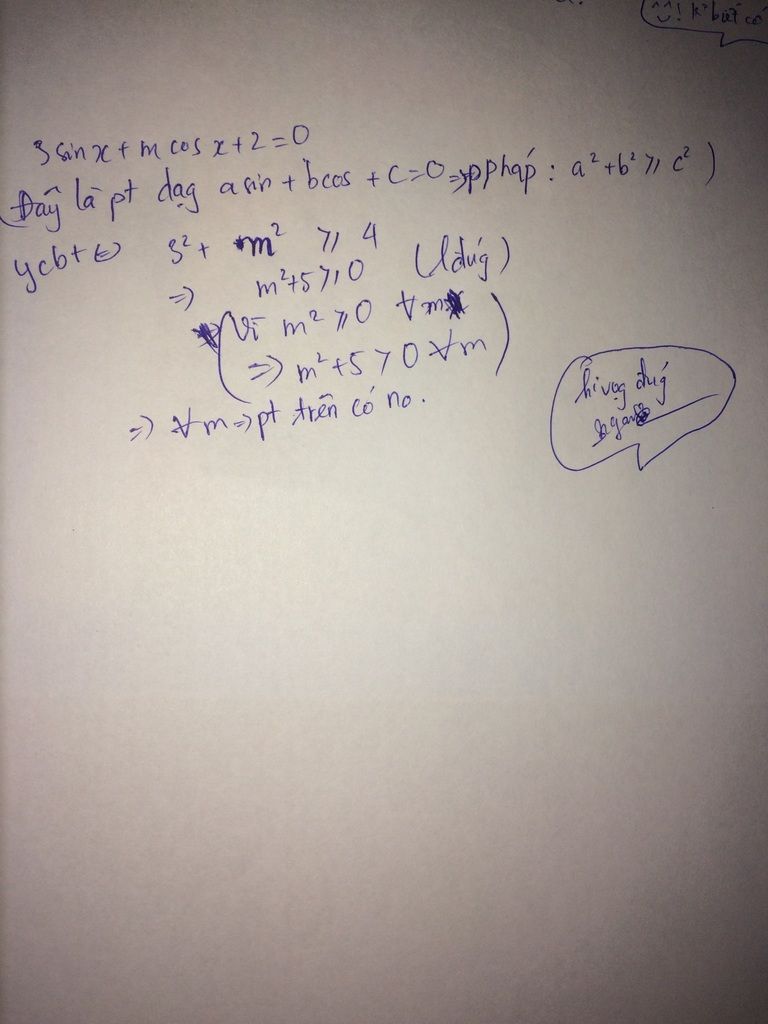 ^^! k² biết có
3 sin x + m cos x + 2 = 0
(Đây là pt dạg a sin + b cos + c = 0 => p pháp : a² + b² ≥ c² )
ycbt <=> 3² + m² ≥ 4
=> m² + 5 ≥ 0 (lđúg)
(Vì m² ≥ 0 ∀m
=> m² + 5 > 0 ∀m)
=> ∀m => pt trên có no.
hi vọg đúg